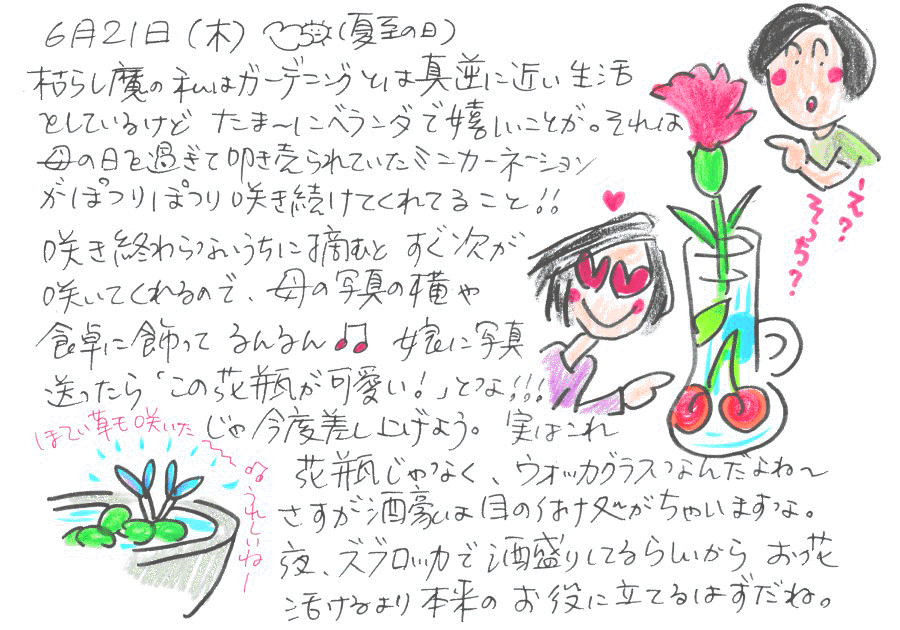 6月21日(木) (夏至の日)
枯らし魔の私はガーデニングとは真逆に近い生活
としているけど たま〜にベランダで嬉しいことが。それは
母の日を過ぎて叩き売られていたミニカーネーション
がぽつりぽつり咲き続けてくれてること!!
咲き終わらないうちに摘むと すぐ次が
咲いてくれるので、母の写真の横や
食卓に飾って るんるん♫ 娘に写真
送ったら「この花瓶が可愛い!」とな!!!
じゃ今度差し上げよう。実はこれ
花瓶じゃなく、ウォッカグラスなんだよね〜
さすが酒豪は目の付け処がちゃいますな。
夜、ズブロッカで酒盛りしてるらしいから お花
活けるより本来の お役に立てるはずだね。
え?
そっち?
ほてい草も咲いた〜
うれしいねー